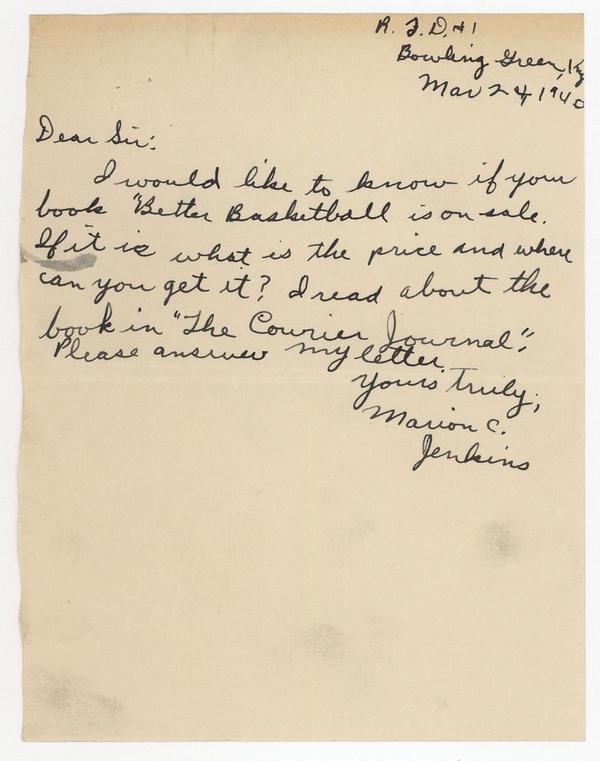 R. F. D. #1
Bowling Green, Ky
Mar 24, 1940
Dear Sir:
I would like to know if your
book "Better Basketball is on sale.
If it is what is the price and where
can you get it? I read about the
book in "The Courier Journal".
Please answer my letter.
Yours Truly,
Marion C.
Jenkins